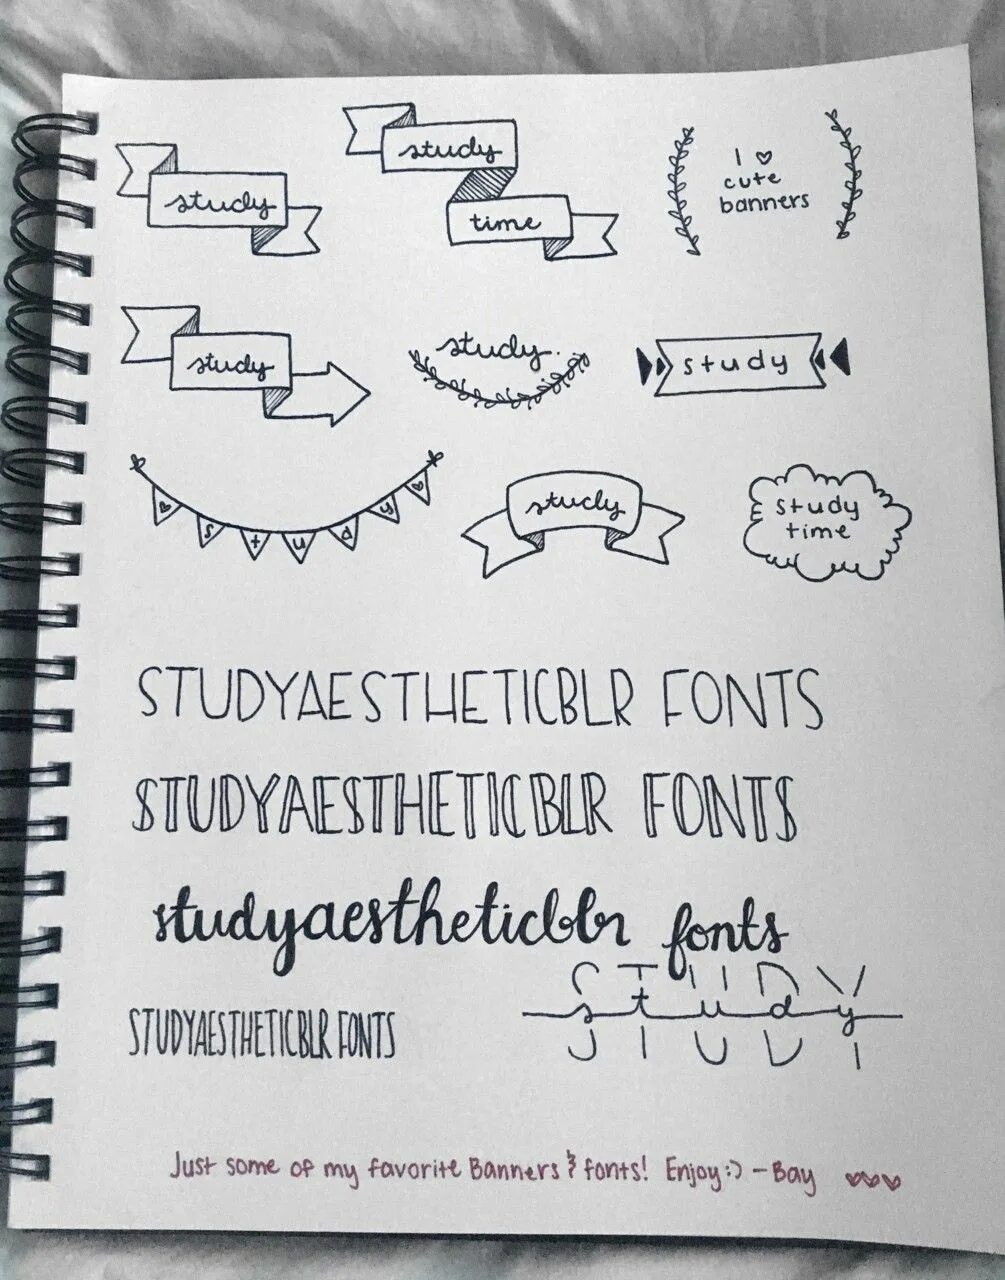 study
study
time
I ♡
cute
banners
study
study
study
♡ study ♡
study
study
time
STUDYAESTHETICBLR FONTS
STUDYAESTHETICBLR FONTS
studyaestheticblr fonts
STUDYAESTHETICBLR FONTS
STUDY
study
Just some of my favorite Banners & fonts! Enjoy :) - Bay ♡♡♡